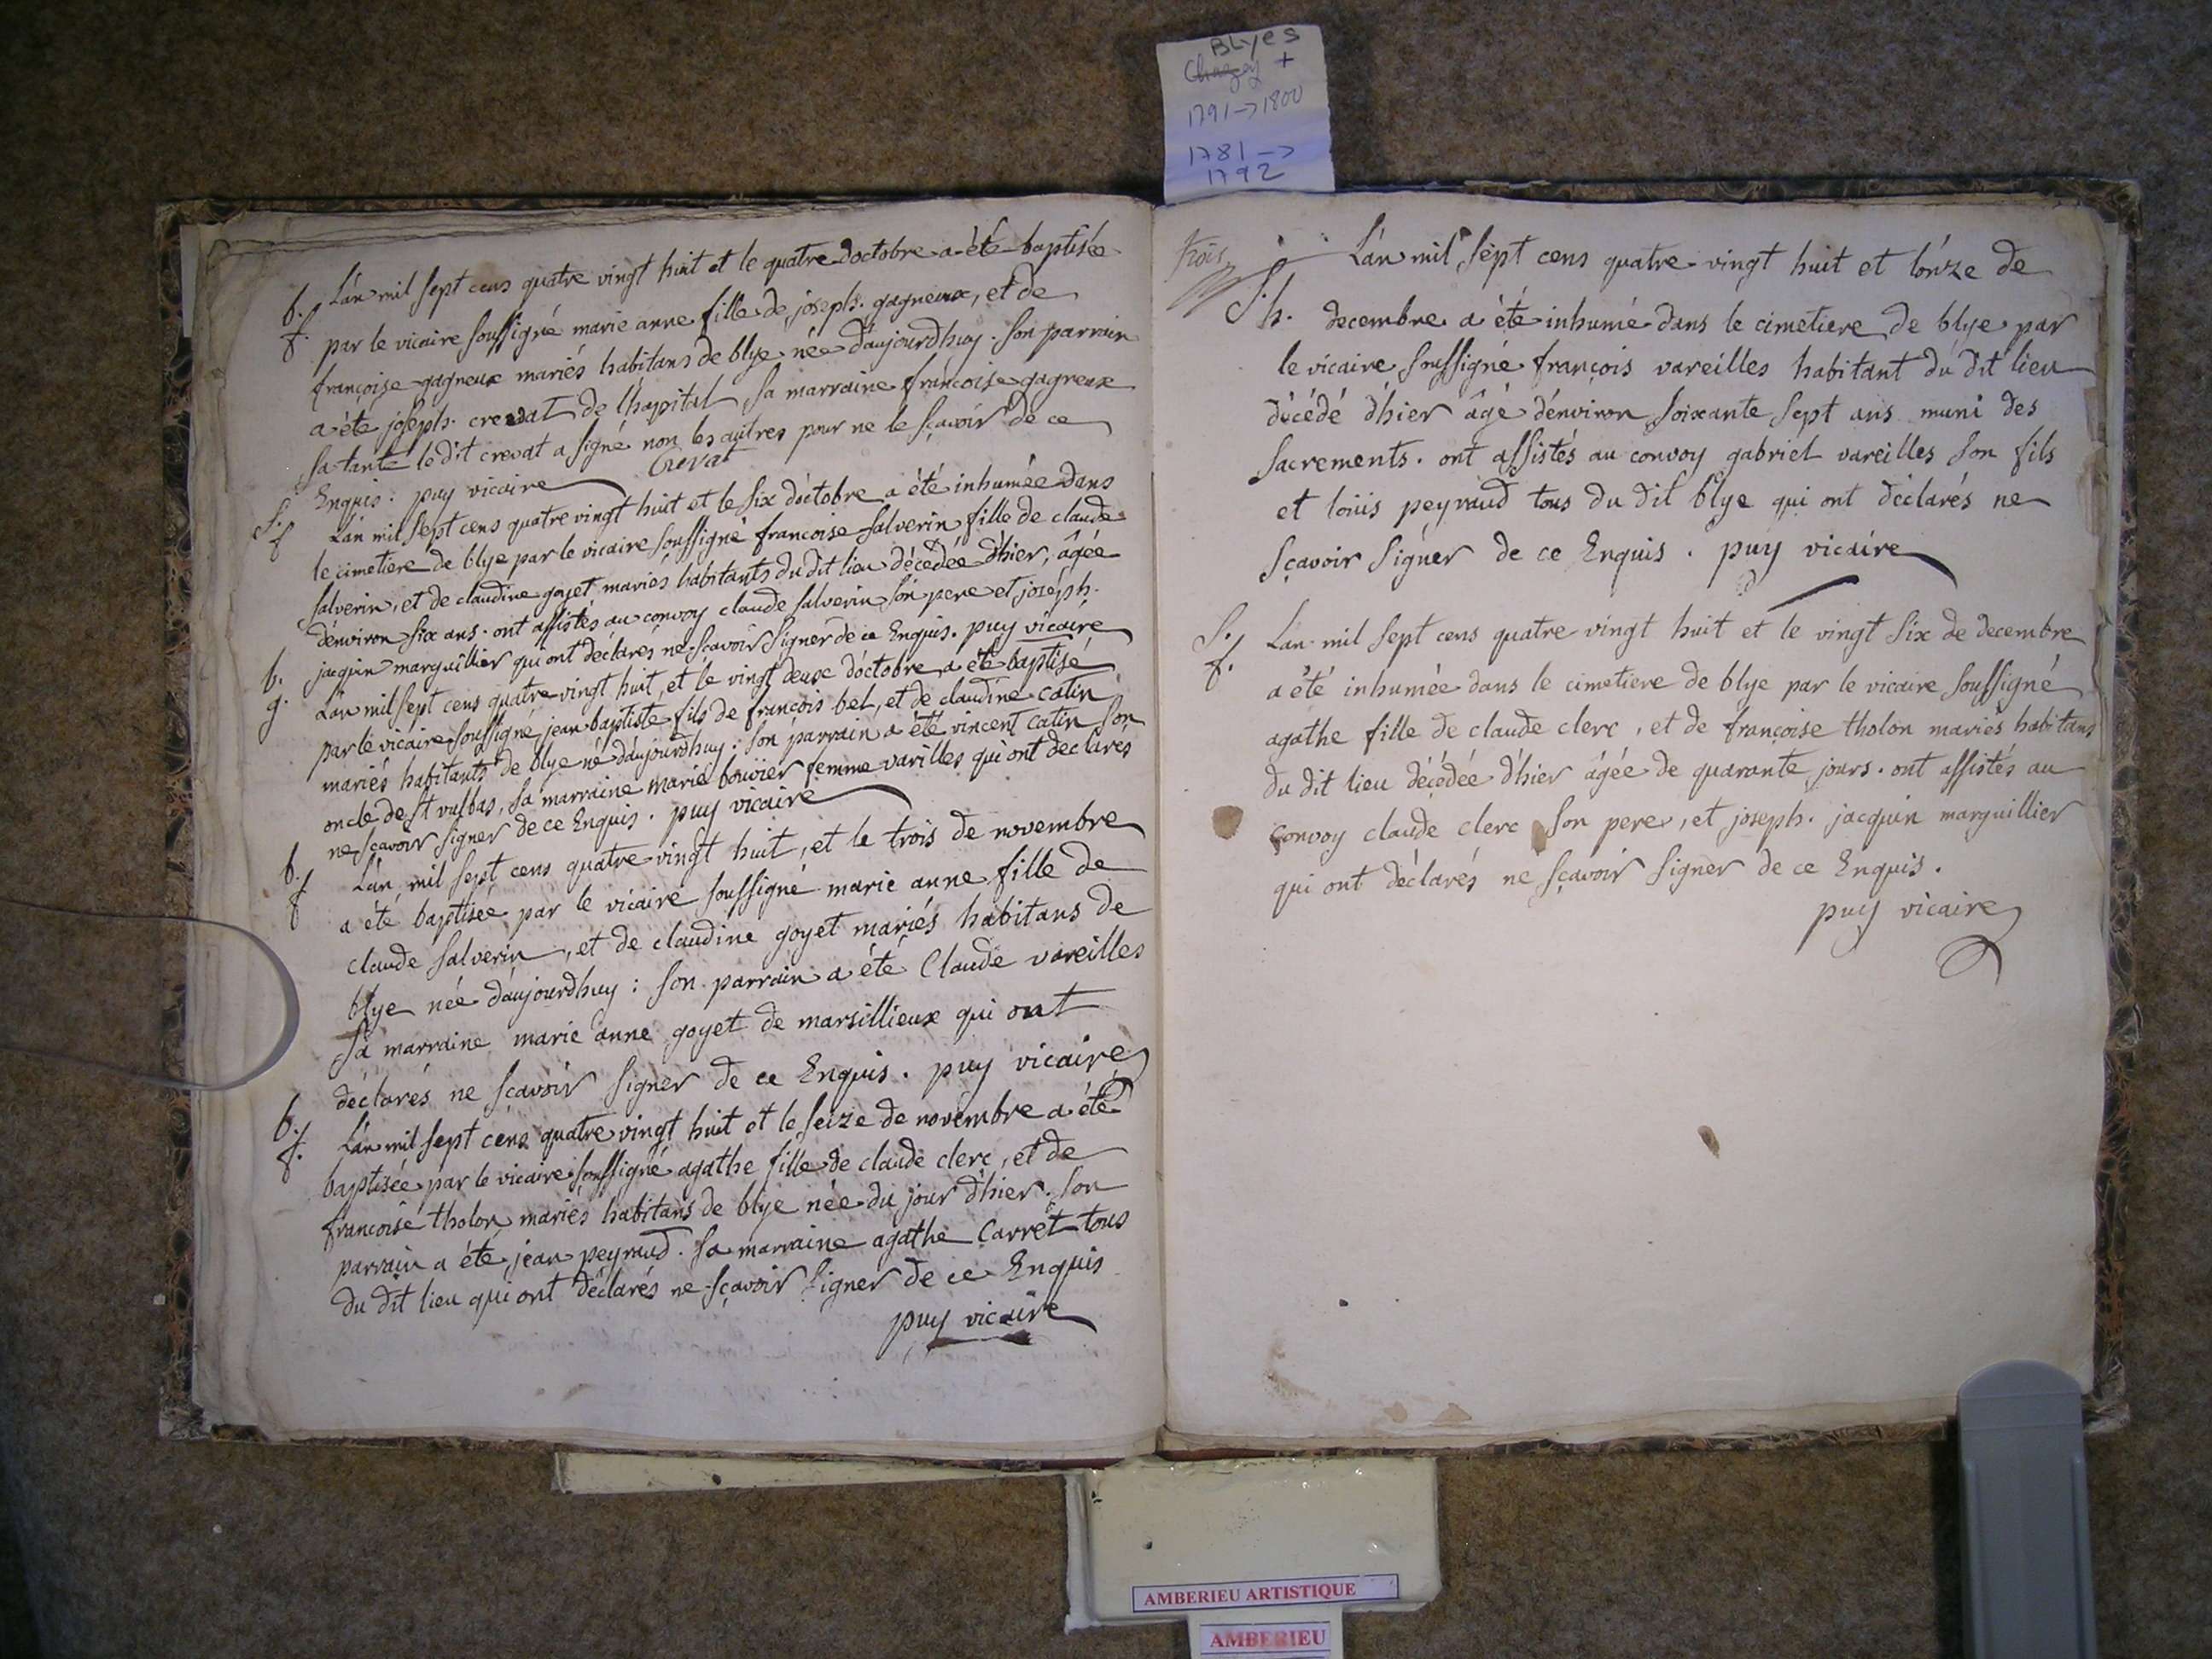 BLyes
Chazey +
1791->1800
1781->
1792
b. L'an mil sept cens quatre vingt huit et le quatre d'octobre a été baptisée
f. par le vicaire soussigné marie anne fille de joseph. gagneux, et de
françoise gagneux mariés habitans de blye née d'aujourdhuy. son parrain
a été joseph. crevat de l'hapital sa marraine françoise gagneux
sa tante le dit crevat a signé non les autres pour ne le sçavoir de ce
Enquis: puy vicaire Crevat
S. L'an mil sept cens quatre vingt huit et le six d'octobre a été inhumée dans
f le cimetiere de blye par le vicaire soussigné francoise salverin fille de claude
salverin, et de claudine goyet mariés habitants du dit lieu décédée d'hier, âgée
d'environ six ans. ont assistés au convoy claude salverin son pere et joseph.
jacquin marguillier qui ont déclarés ne sçavoir signer de ce Enquis. puy vicaire
b. L'an mil sept cens quatre vingt huit, et le vingt deux d'octobre a été baptisé
g. par le vicaire soussigné jean baptiste fils de françois bel, et de claudine catin
mariés habitants de blye né d'aujourdhuy. son parrain a été vincent catin son
oncle de st vulbas, sa marraine marie bouvier femme varilles qui ont declarés
ne sçavoir signer de ce Enquis. puy vicaire
b. L'an mil sept cens quatre vingt huit, et le trois de novembre
f a été baptisée par le vicaire soussigné marie anne fille de
claude salverin, et de claudine goyet mariés habitans de
blye née d'aujourdhuy: son parrain a été Claude vareilles
sa marraine marie anne goyet de marsillieux qui ont
déclarés ne sçavoir signer de ce Enquis. puy vicaire
b. L'an mil sept cens quatre vingt huit et le seize de novembre a été
f. baptisée par le vicaire soussigné agathe fille de claude clerc, et de
francoise tholon mariés habitans de blye née du jour d'hier. son
parrain a été jean peyraud. sa marraine agathe Carret tous
du dit lieu qui ont déclarés ne sçavoir signer de ce Enquis
puy vicaire
trois
L'an mil sept cens quatre vingt huit et l'onze de
S. h. decembre a été inhumé dans le cimetiere de blye par
le vicaire soussigné françois vareilles habitant du dit lieu
décédé d'hier âgé d'environ soixante sept ans muni des
sacrements. ont assistés au convoy gabriel vareilles son fils
et loüis peyraud tous du dit blye qui ont déclarés ne
sçavoir signer de ce Enquis. puy vicaire
S. L'an mil sept cens quatre vingt huit et le vingt six de decembre
f. a été inhumée dans le cimetiere de blye par le vicaire soussigné
agathe fille de claude clerc, et de françoise tholon mariés habitans
du dit lieu décédée d'hier âgée de quarante jours. ont assistés au
convoy claude clerc son pere, et joseph. jacquin marguillier
qui ont déclarés ne sçavoir signer de ce Enquis.
puy vicaire
AMBERIEU ARTISTIQUE
AMBERIEU